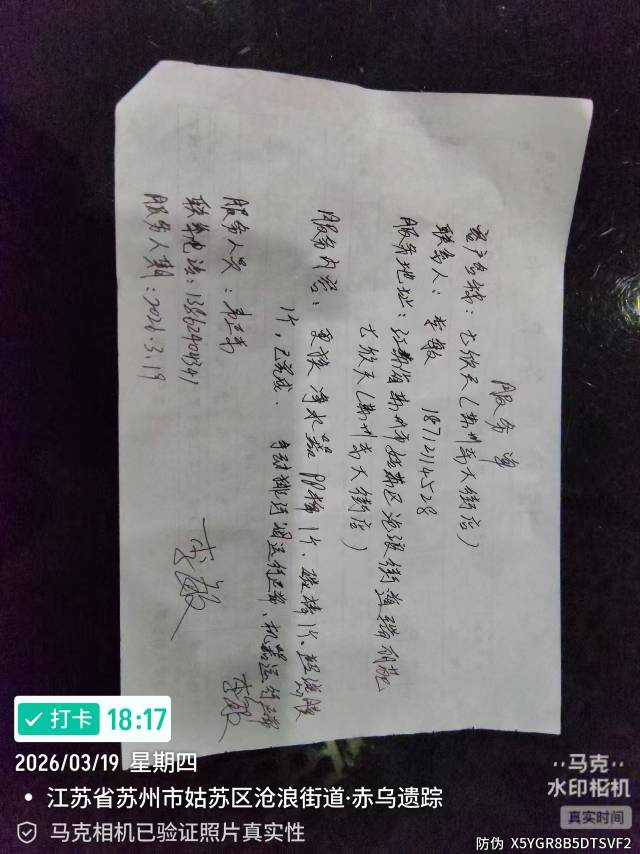 服务单
客户专线：七欣天（苏州市大街店）
联系人：李敏 18712114528
服务地址：江苏省苏州市姑苏区沧浪街道瑞
七欣天（苏州市大街店）
服务内容：更换净水器PP棉1个、碳棒1个、超滤膜
1个，已完成．
机器运行正常
服务人员：
联系电话：13862904341
服务人期：2026.3.19
李敏
李敏
打卡 18:17
2026/03/19 星期四
江苏省苏州市姑苏区沧浪街道·赤乌遗踪
马克相机已验证照片真实性
马克
水印相机
真实时间
防伪 X5YGR8B5DTSVF2